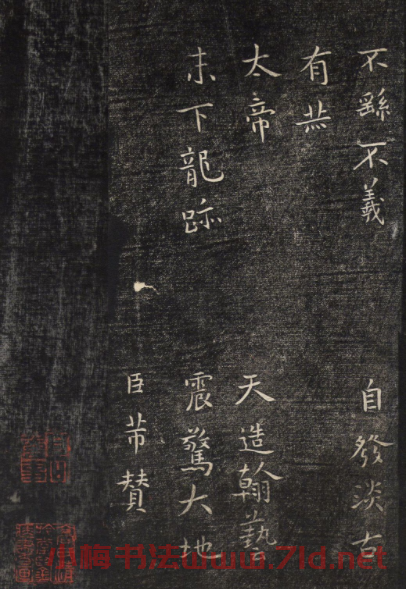 不繇不羲
自發淡古
有
太帝
天造翰藝
末下龍跡
震驚大地
臣芾贊
小梅书法www.7ld.net